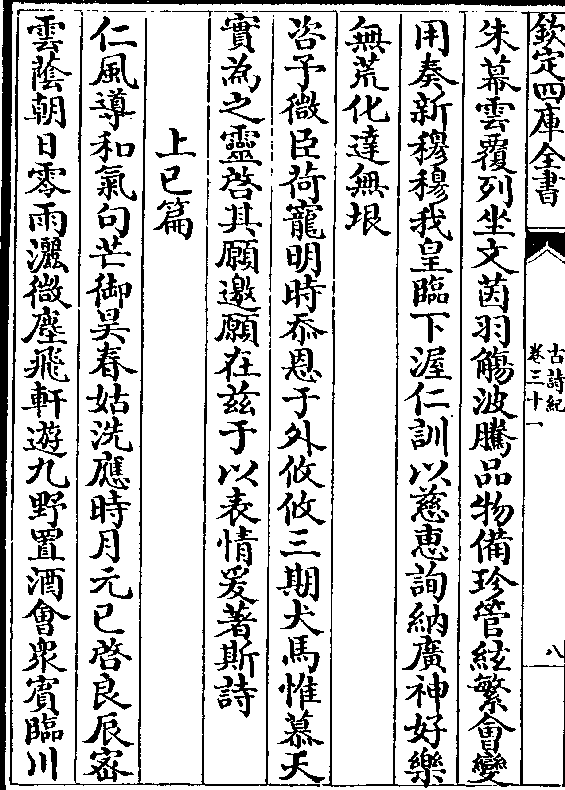 欽定四庫全書
古詩紀
卷三十一
八
朱幕雲覆列坐文茵羽觴波騰品物備珍管絃繁會變
用奏新穆穆我皇臨下渥仁訓以慈惠詢納廣神好樂
無荒化達無垠
咨予微臣荷寵明時忝恩于外攸攸三期犬馬惟慕天
實為之靈啓其願邀願在兹于以表情爰著斯詩
上巳篇
仁風導和氣句芒御昊春姑洗應時月元巳啓良辰宻
雲蔭朝日零雨灑微塵飛軒遊九野置酒會衆賓臨川